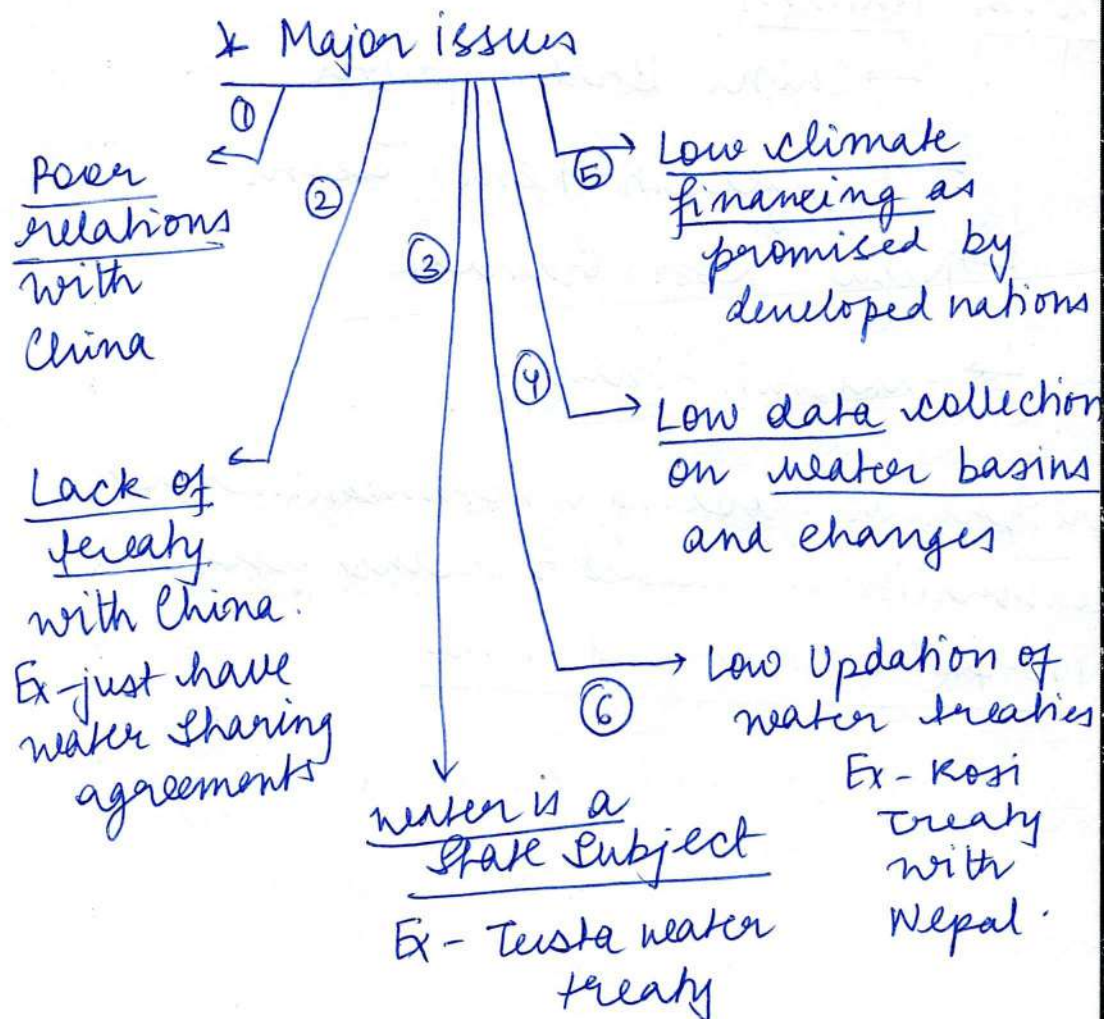 * Major issues
①
Poor
relations
with
China
②
Lack of
treaty
with China.
Ex-just have
water sharing
agreements
③
water is a
State Subject
Ex - Teesta water
treaty
④
Low data collection
on water basins
and changes
⑤
Low climate
financing as
promised by
developed nations
⑥
Low Updation of
water treaties
Ex - Kosi
treaty
with
Nepal.